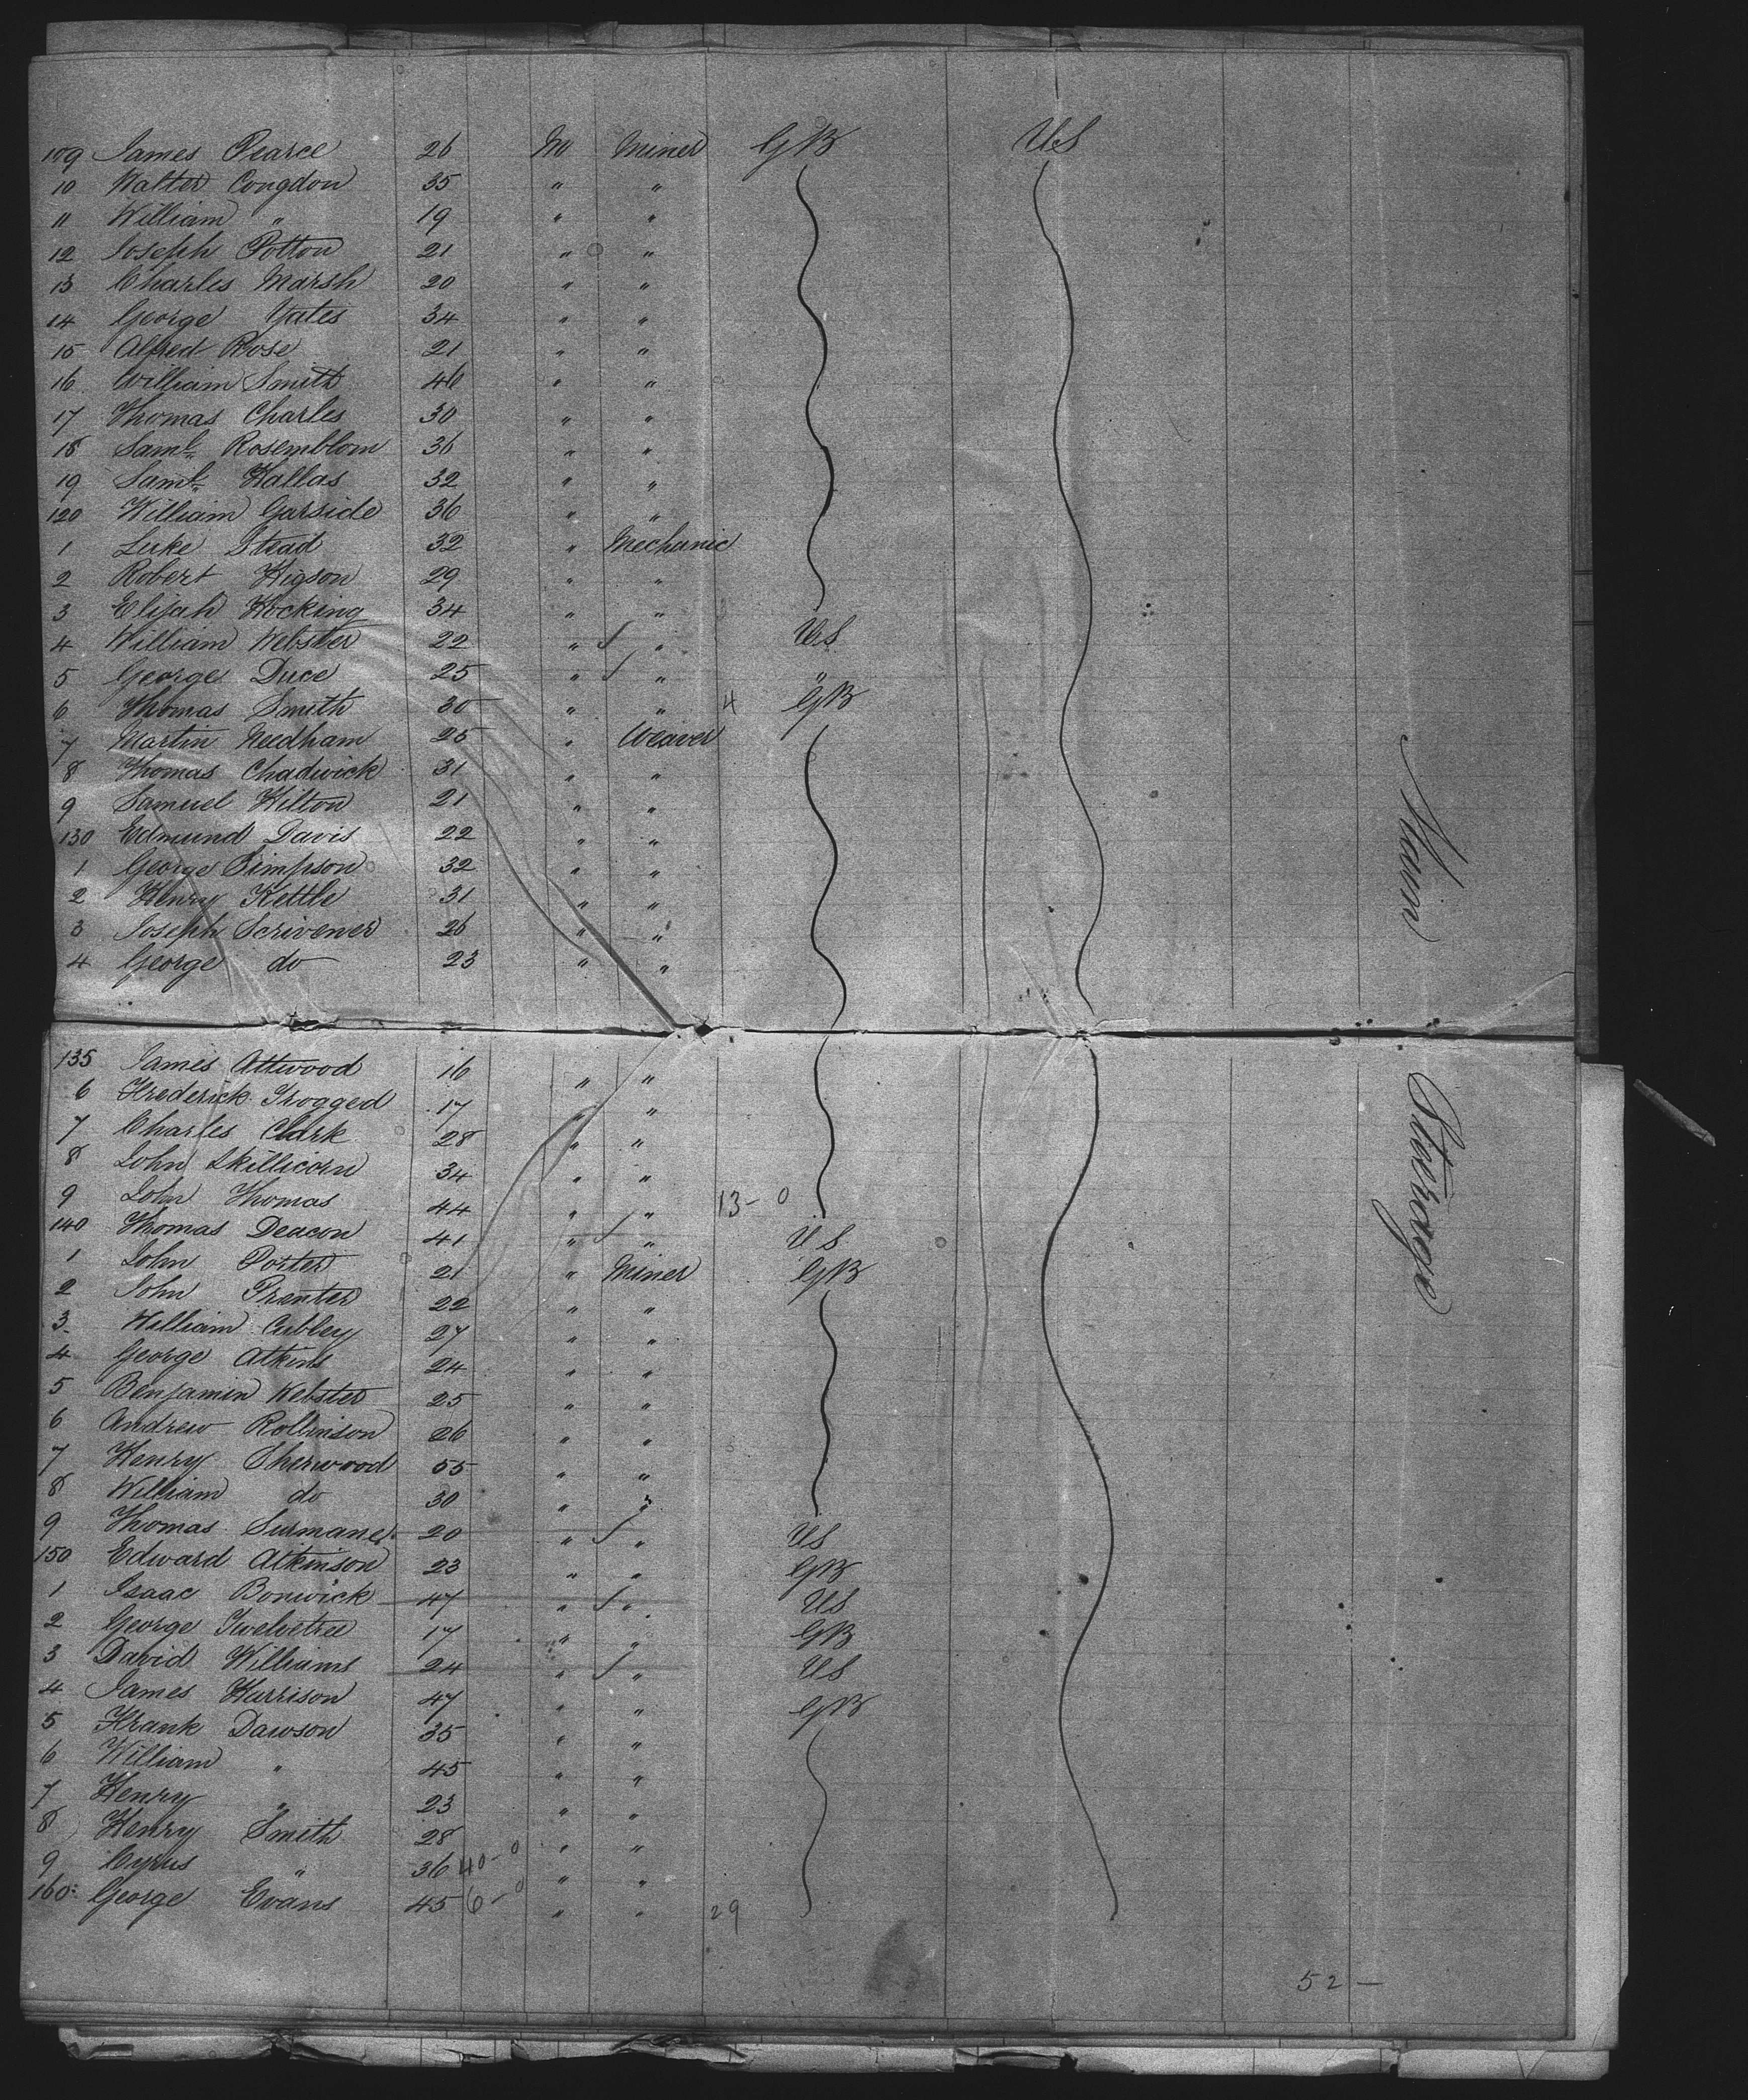 109 James Pearce 26 M Miner GB US
10 Walter Congdon 35 " "
11 William " 19 " "
12 Joseph Potton 21 " "
13 Charles Marsh 20 " "
14 George Yates 34 " "
15 Alfred Rose 21 " "
16 William Smith 46 " "
17 Thomas Charles 30 " "
18 Saml. Rosemblom 36 " "
19 Saml. Hallas 32 " "
120 William Garside 36 " "
1 Luke Stead 32 " Mechanic
2 Robert Higson 29 " "
3 Elijah Hocking 34 " "
4 William Webster 22 " " US
5 George Duce 25 " " "
6 Thomas Smith 30 " " 4 GB
7 Martin Needham 25 " Weaver
8 Thomas Chadwick 31 " "
9 Samuel Hilton 21 " "
130 Edmund Davis 22 " "
1 George Simpson 32 " "
2 Henry Kettle 31 " "
3 Joseph Scrivener 26 " "
4 George do 23 " "
Main
135 James Attwood 16 " "
6 Frederick Trogged 17 " "
7 Charles Clark 28 " "
8 John Skillicorn 34 " "
9 John Thomas 44 " " 13-0
140 Thomas Deacon 41 " " US
1 John Porter 21 " Miner GB
2 John Pranter 22 " "
3 William Cubley 27 " "
4 George Atkins 24 " "
5 Benjamin Webster 25 " "
6 Andrew Rollinson 26 " "
7 Henry Sherwood 55 " "
8 William do 30 " "
9 Thomas 20 " " US
150 Edward Atkinson 23 " " GB
1 Isaac Bonwick 47 " " US
2 George Twelvetree 17 " " GB
3 David Williams 24 " " US
4 James Harrison 47 " " GB
5 Frank Dawson 35 " "
6 William " 45 " "
7 Henry " 23 " "
8 Henry Smith 28 " "
9 Cyrus " 36 40-0 " "
160 George Evans 45 6-0 " " 29
Steerage
52 —